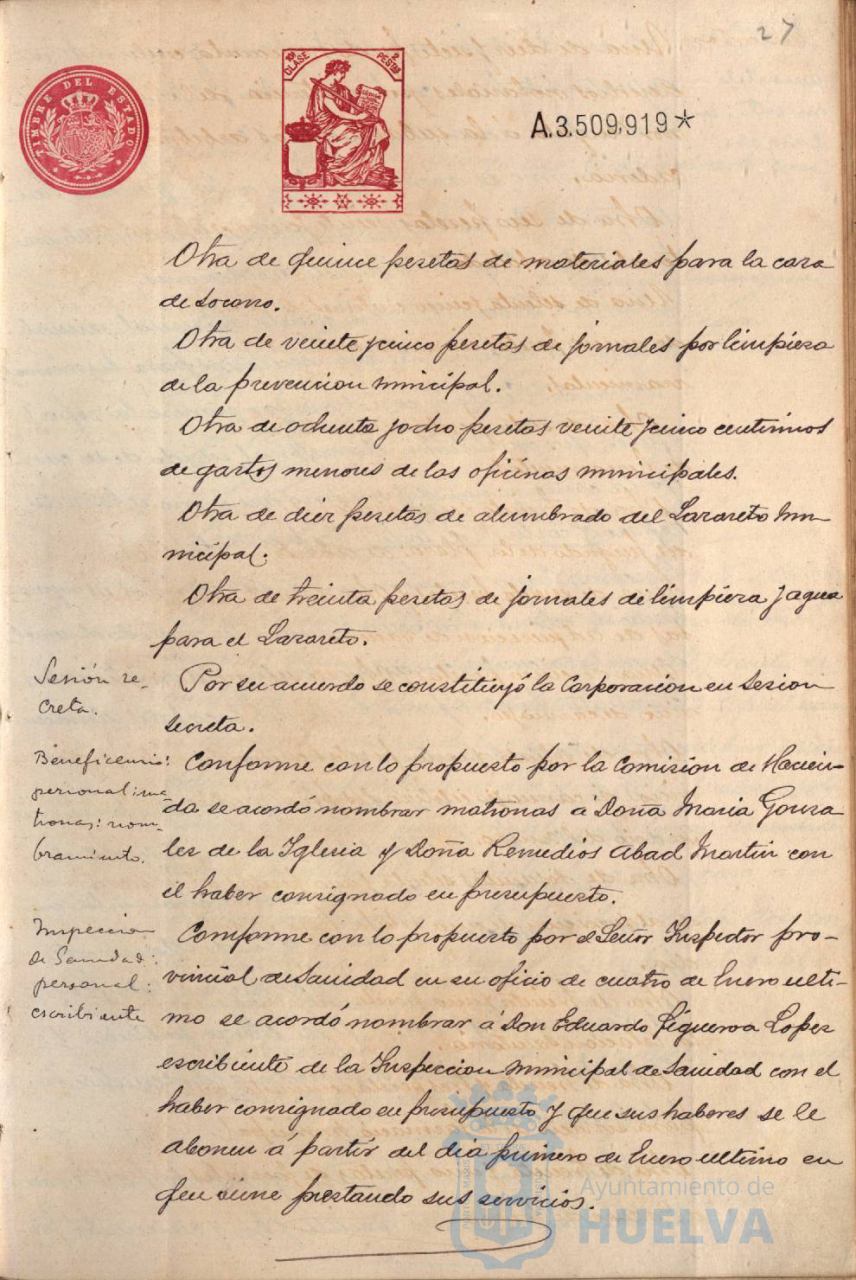 27
TIMBRE DEL ESTADO
10ª CLASE 2 PESTAS
A.3.509,919*
Otra de quince pesetas de materiales para la casa
de Socorro.
Otra de veinte y cinco pesetas de jornales por limpieza
de la prevencion municipal.
Otra de ochenta y ocho pesetas veinte y cinco centimos
de gastos menores de las oficinas municipales.
Otra de diez pesetas de alumbrado del Lazareto mu-
nicipal.
Otra de treinta pesetas de jornales de limpieza y agua
para el Lazareto.
Sesión se-
creta.
Por su acuerdo se constituyó la Corporacion en sesion
secreta.
Beneficencia:
personal: ma-
tronas: nom-
bramiento.
Conforme con lo propuesto por la Comision de Hacien-
da se acordó nombrar matronas á Doña Maria Gonza
lez de la Iglesia y Doña Remedios Abad Martin con
el haber consignado en presupuesto.
Inspeccion
de Sanidad:
personal:
escribiente
Conforme con lo propuesto por el Señor Inspector pro-
vincial de Sanidad en su oficio de cuatro de Enero ulti-
mo se acordó nombrar á Don Eduardo Figueroa Lopez
escribiente de la Inspeccion municipal de Sanidad con el
haber consignado en presupuesto y que sus haberes se le
abonen á partir del dia primero de Enero ultimo en
que viene prestando sus servicios.
Ayuntamiento de
HUELVA